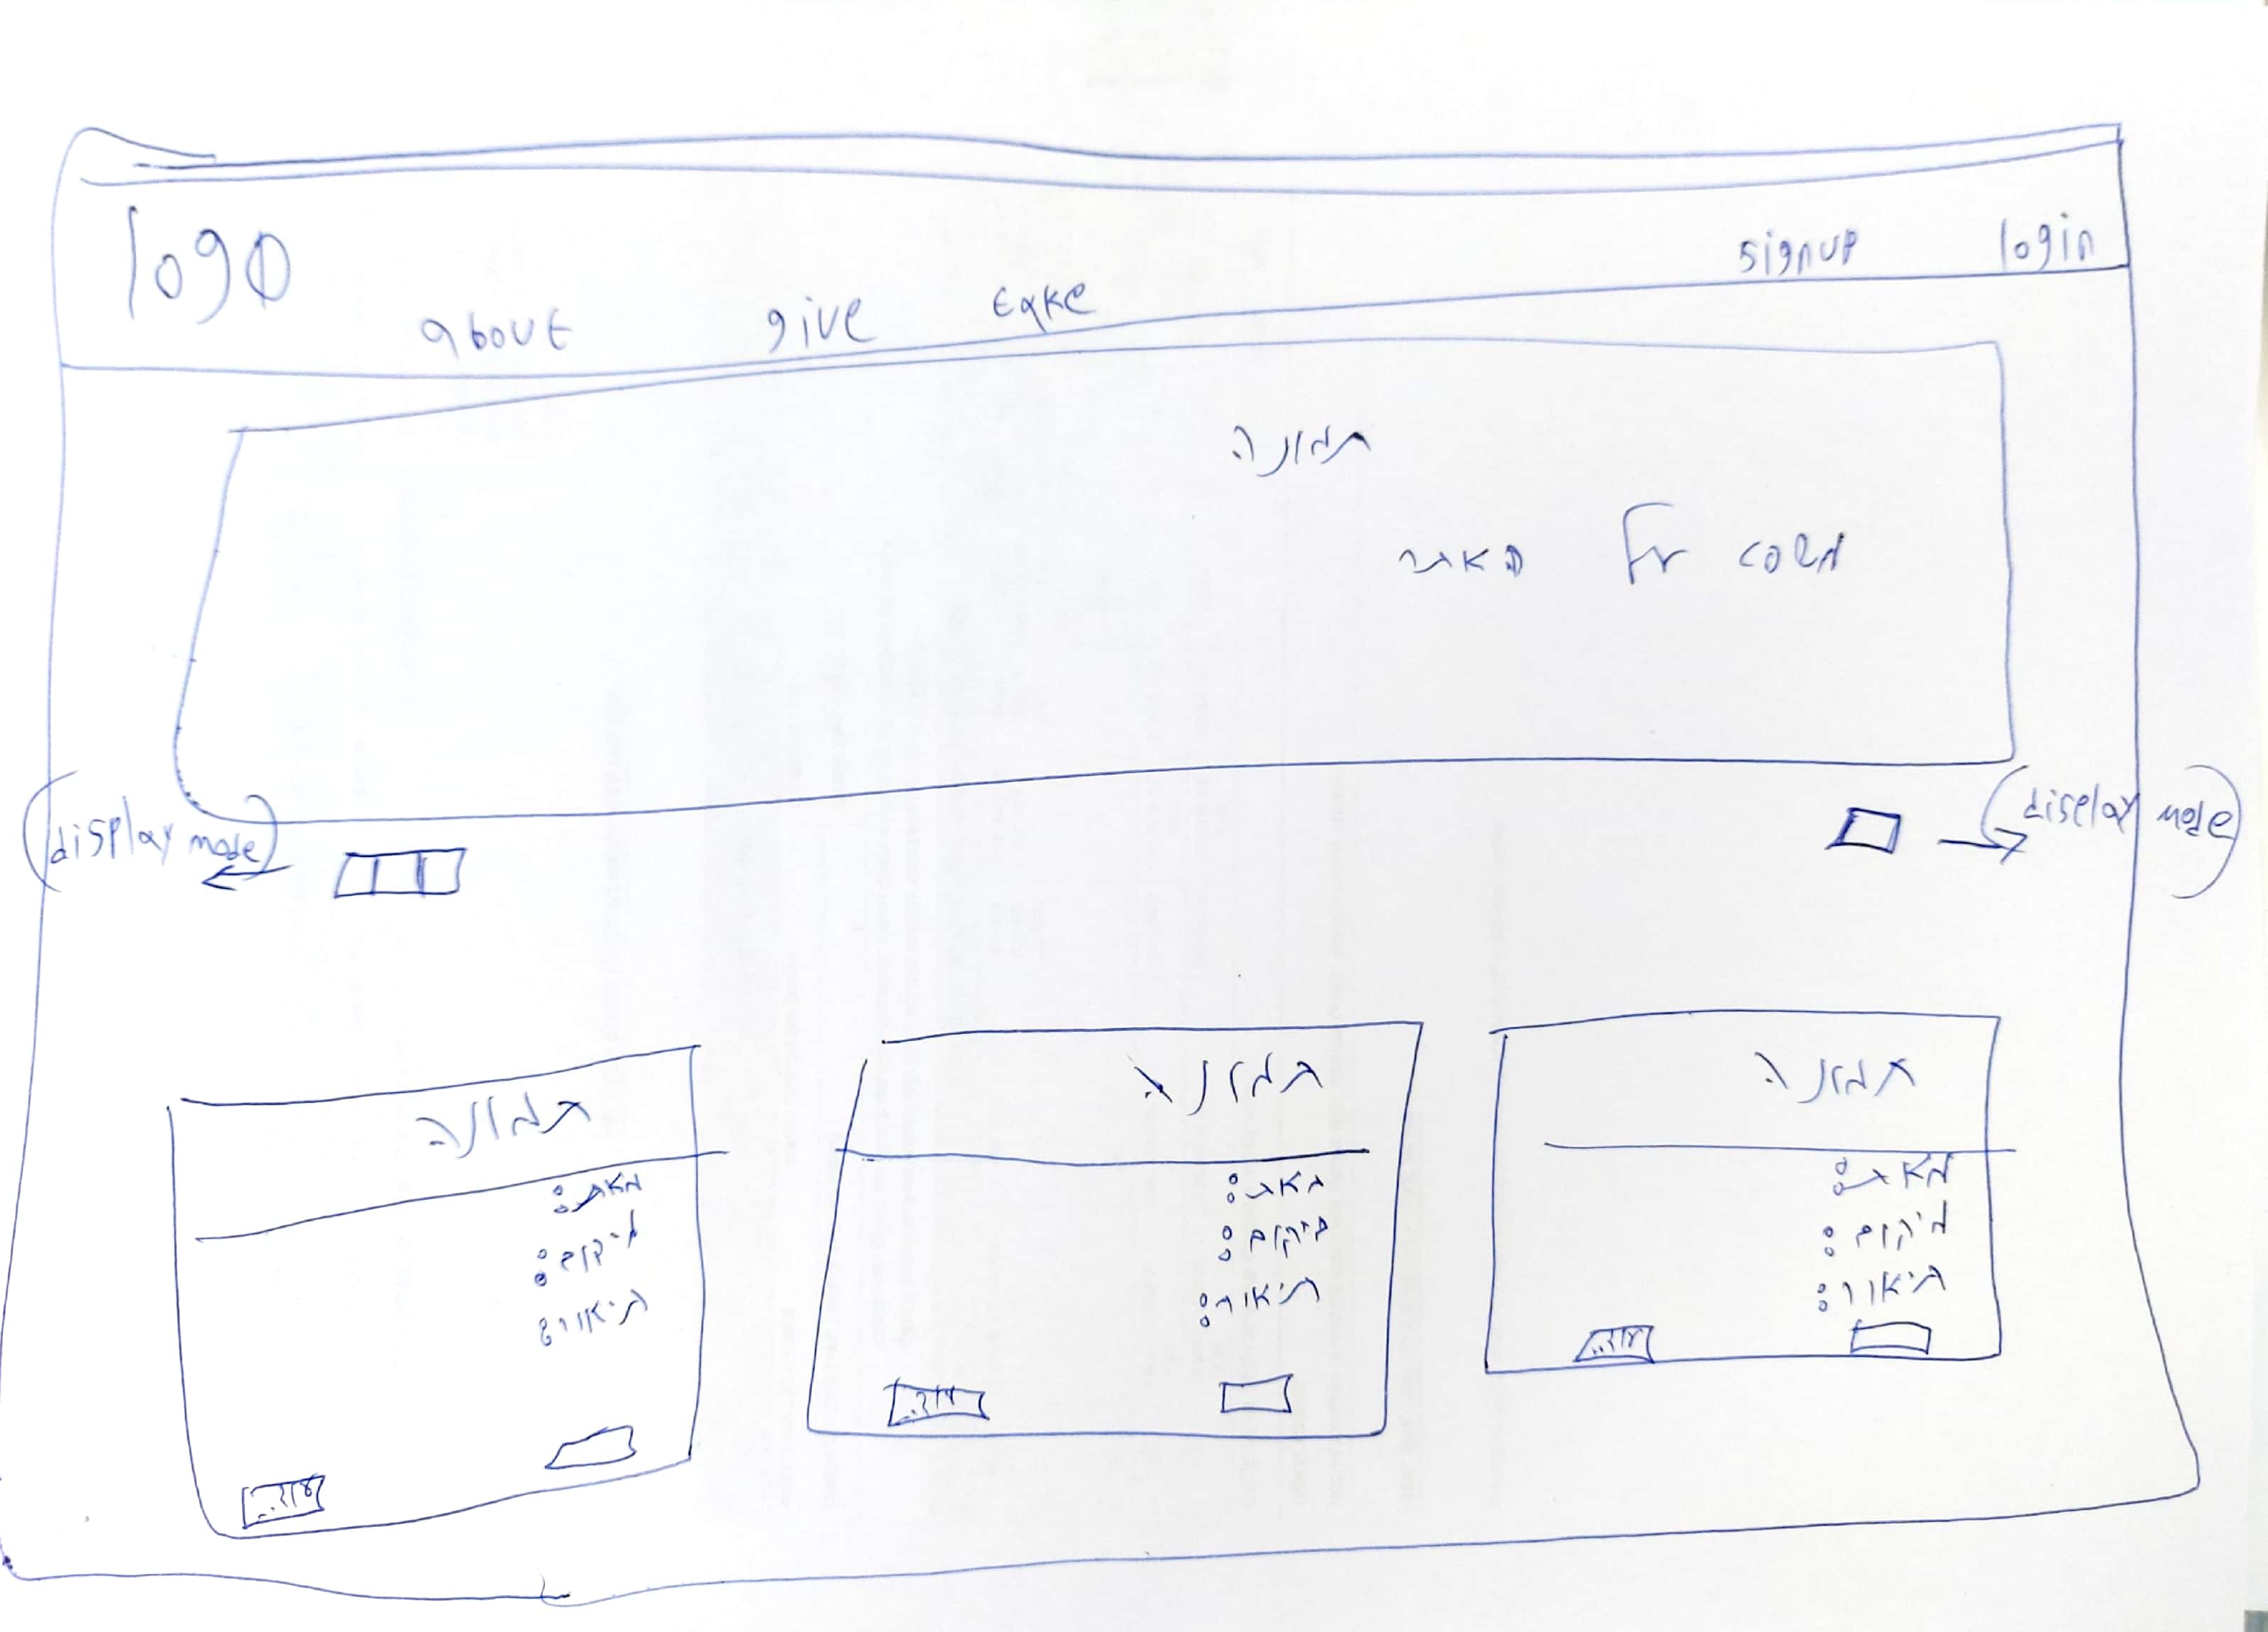 logo
about give take
signup login
תמונה
טקסט על האתר
(display mode)
(display mode)
תמונה
מאת:
מיקום:
תיאור:
תמונה
מאת:
מיקום:
תיאור:
תמונה
מאת:
מיקום:
תיאור: